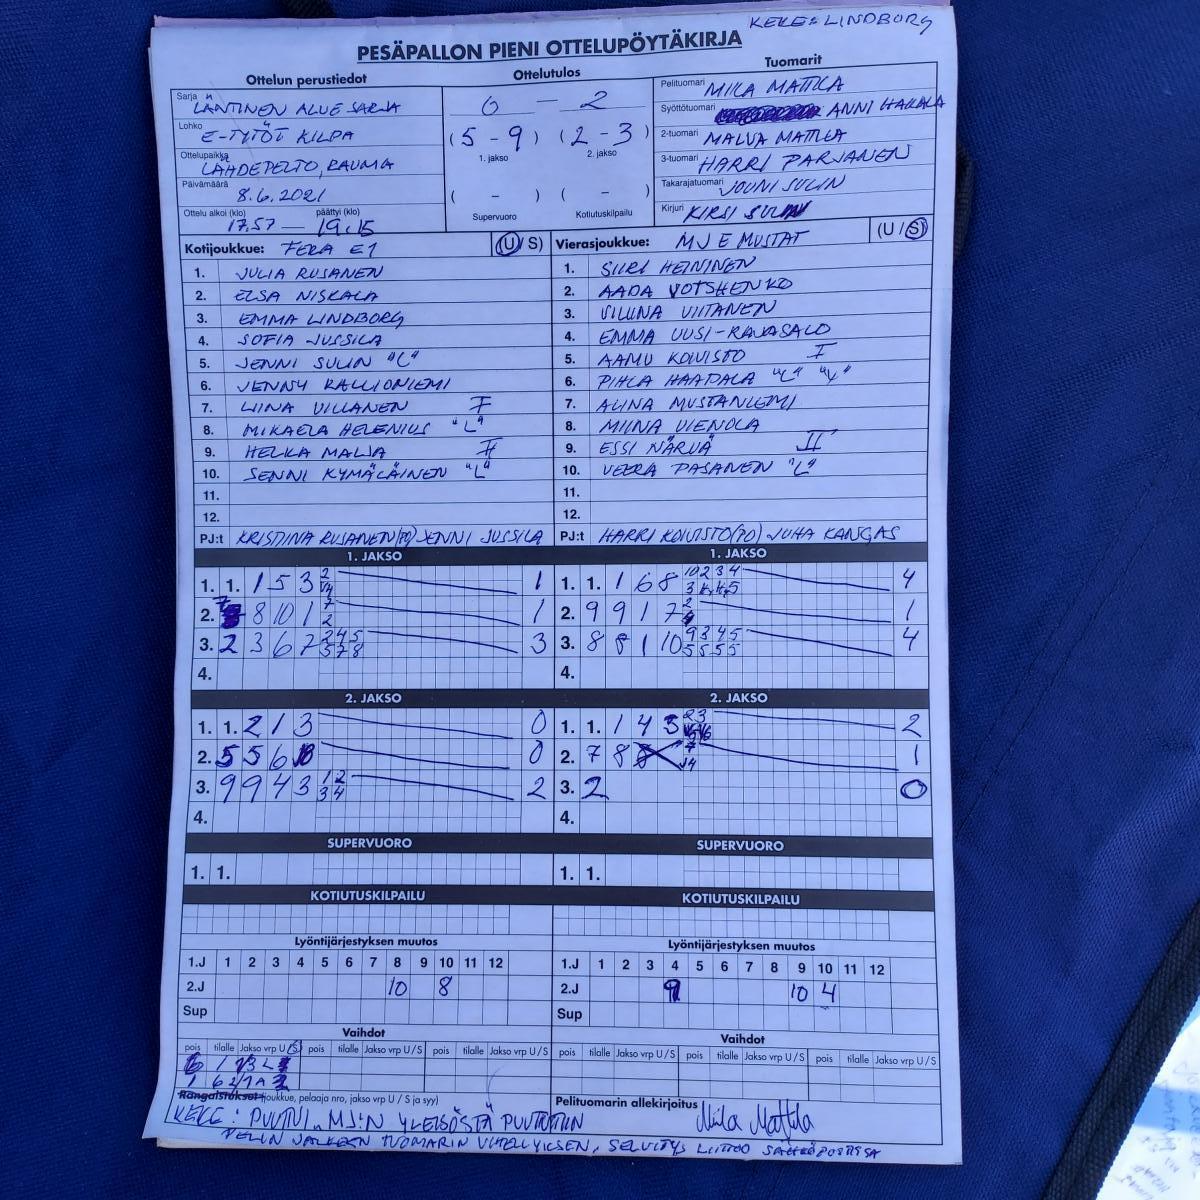 KEKE: LINDBORG
PESÄPALLON PIENI OTTELUPÖYTÄKIRJA
Ottelun perustiedot
Sarja LÄNTINEN ALUESARJA
Lohko E-TYTÖT KILPA
Ottelupaikka LÄHDEPELTO, RAUMA
Päivämäärä 8.6.2021
Ottelu alkoi (klo) päättyi (klo)
17.57 — 19.15
Ottelutulos
0 — 2
(5 - 9) (2 - 3)
1. jakso 2. jakso
( - ) ( - )
Supervuoro Kotiutuskilpailu
Tuomarit
Pelituomari MIILA MATTILA
Syöttötuomari ANNI HAKALA
2-tuomari MALVA MATTILA
3-tuomari HARRI PARJANEN
Takarajatuomari JOUNI SULIN
Kirjuri KIRSI SULIN
Kotijoukkue: FERA E1 (U/S)
1. JULIA RUSANEN
2. ELSA NISKALA
3. EMMA LINDBORG
4. SOFIA JUSSILA
5. JENNI SULIN "L"
6. JENNY KALLIONIEMI
7. LIINA VILLANEN I
8. MIKAELA HELENIUS "L"
9. HELKA MALJA II
10. SENNI KYMÄLÄINEN "L"
11.
12.
PJ:t KRISTIINA RUSANEN (PO) JENNI JUSSILA
Vierasjoukkue: MJ E MUSTAT (U/S)
1. SIIRI HEININEN
2. AADA VOTSHENKO
3. VILIINA VIITANEN
4. EMMA UUSI-RAVASALO
5. AAMU KOIVISTO I
6. PIHLA HAAPALA "L" "V"
7. ALINA MUSTANIEMI
8. MIINA VIENOLA
9. ESSI NÄRVÄ II
10. VEERA PASANEN "L"
11.
12.
PJ:t HARRI KOIVISTO (PO) JUHA KANGAS
1. JAKSO
1. 1. 1 5 3 1
2. 8 10 1 1
3. 2 3 6 7 3
4.
1. JAKSO
1. 1. 1 6 8 4
2. 9 9 1 7 1
3. 8 8 1 10 4
4.
2. JAKSO
1. 1. 2 1 3 0
2. 5 5 6 0
3. 9 9 4 3 2
4.
2. JAKSO
1. 1. 1 4 3 2
2. 7 8 1
3. 2 0
4.
SUPERVUORO
1. 1.
SUPERVUORO
1. 1.
KOTIUTUSKILPAILU
KOTIUTUSKILPAILU
Lyöntijärjestyksen muutos
1.J 1 2 3 4 5 6 7 8 9 10 11 12
2.J 10 8
Sup
Lyöntijärjestyksen muutos
1.J 1 2 3 4 5 6 7 8 9 10 11 12
2.J 9 10 4
Sup
Vaihdot
pois tilalle Jakso vrp U/S pois tilalle Jakso vrp U/S pois tilalle Jakso vrp U/S
Vaihdot
pois tilalle Jakso vrp U/S pois tilalle Jakso vrp U/S pois tilalle Jakso vrp U/S
Rangaistukset (joukkue, pelaaja nro, jakso vrp U / S ja syy)
Pelituomarin allekirjoitus Miila Mattila
KEKE: PUUTUI, MJ:N YLEISÖSTÄ PUUTUTTIIN
PELIN JÄLKEEN TUOMARIN VIHELLYKSEEN, SELVITYS LIITTOO SÄHKÖPOSTISSA